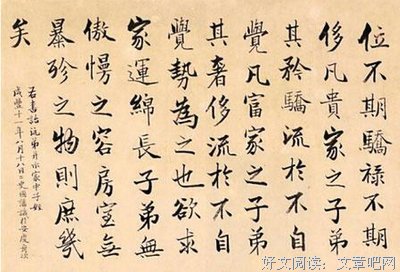 位不期驕祿不期
侈凡貴家之子弟
其矜驕流於不自
覺凡富家之子弟
其奢侈流於不自
覺勢為之也欲求
家運綿長子弟無
傲慢之容房室無
暴殄之物則庶幾
矣
書詒沅弟并示家中子姪
咸豐十一年八月十八日國藩識於安慶舟次
好文阅读:文章吧网